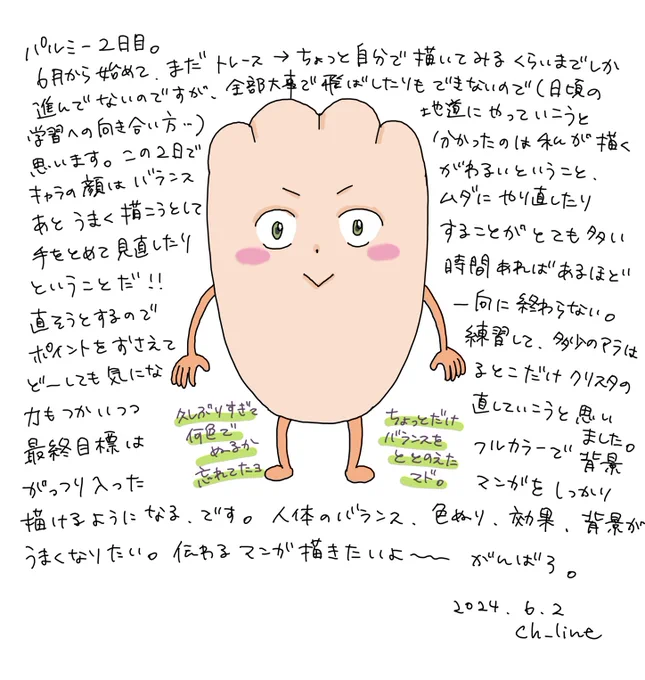 パルミー2日目。
6月から始めて、まだトレース→ちょっと自分で描いてみるくらいまでしか
進んでないのですが、全部大事で飛ばしたりもできないので(日頃の
学習への向き合い方…) 地道にやっていこうと
思います。この2日で 分かったのは私が描く
キャラの顔はバランス がわるいということ、
あとうまく描こうとして ムダにやり直したり
手をとめて見直したり することがとても多い
ということだ!! 時間あればあるほど
直そうとするので 一向に終わらない。
ポイントをおさえて 練習して、多少のアラは
どーしても気にな るとこだけクリスタの
力もつかいつつ 直していこうと思い
ました。
最終目標は フルカラーで背景
がっつり入った マンガをしっかり
描けるようになる、です。人体のバランス、色ぬり、効果、背景が
うまくなりたい。伝わるマンガ描きたいよ〜〜 がんばろ。
久しぶりすぎて
何色で
ぬーるか
忘れてたヨ
ちょっとだけ
バランスを
ととのえた
マド。
2024.6.2
ch_line